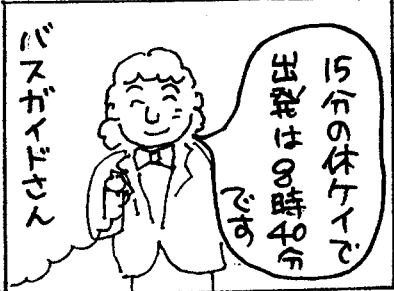 15分の休ケイで
出発は8時40分
です
バスガイドさん